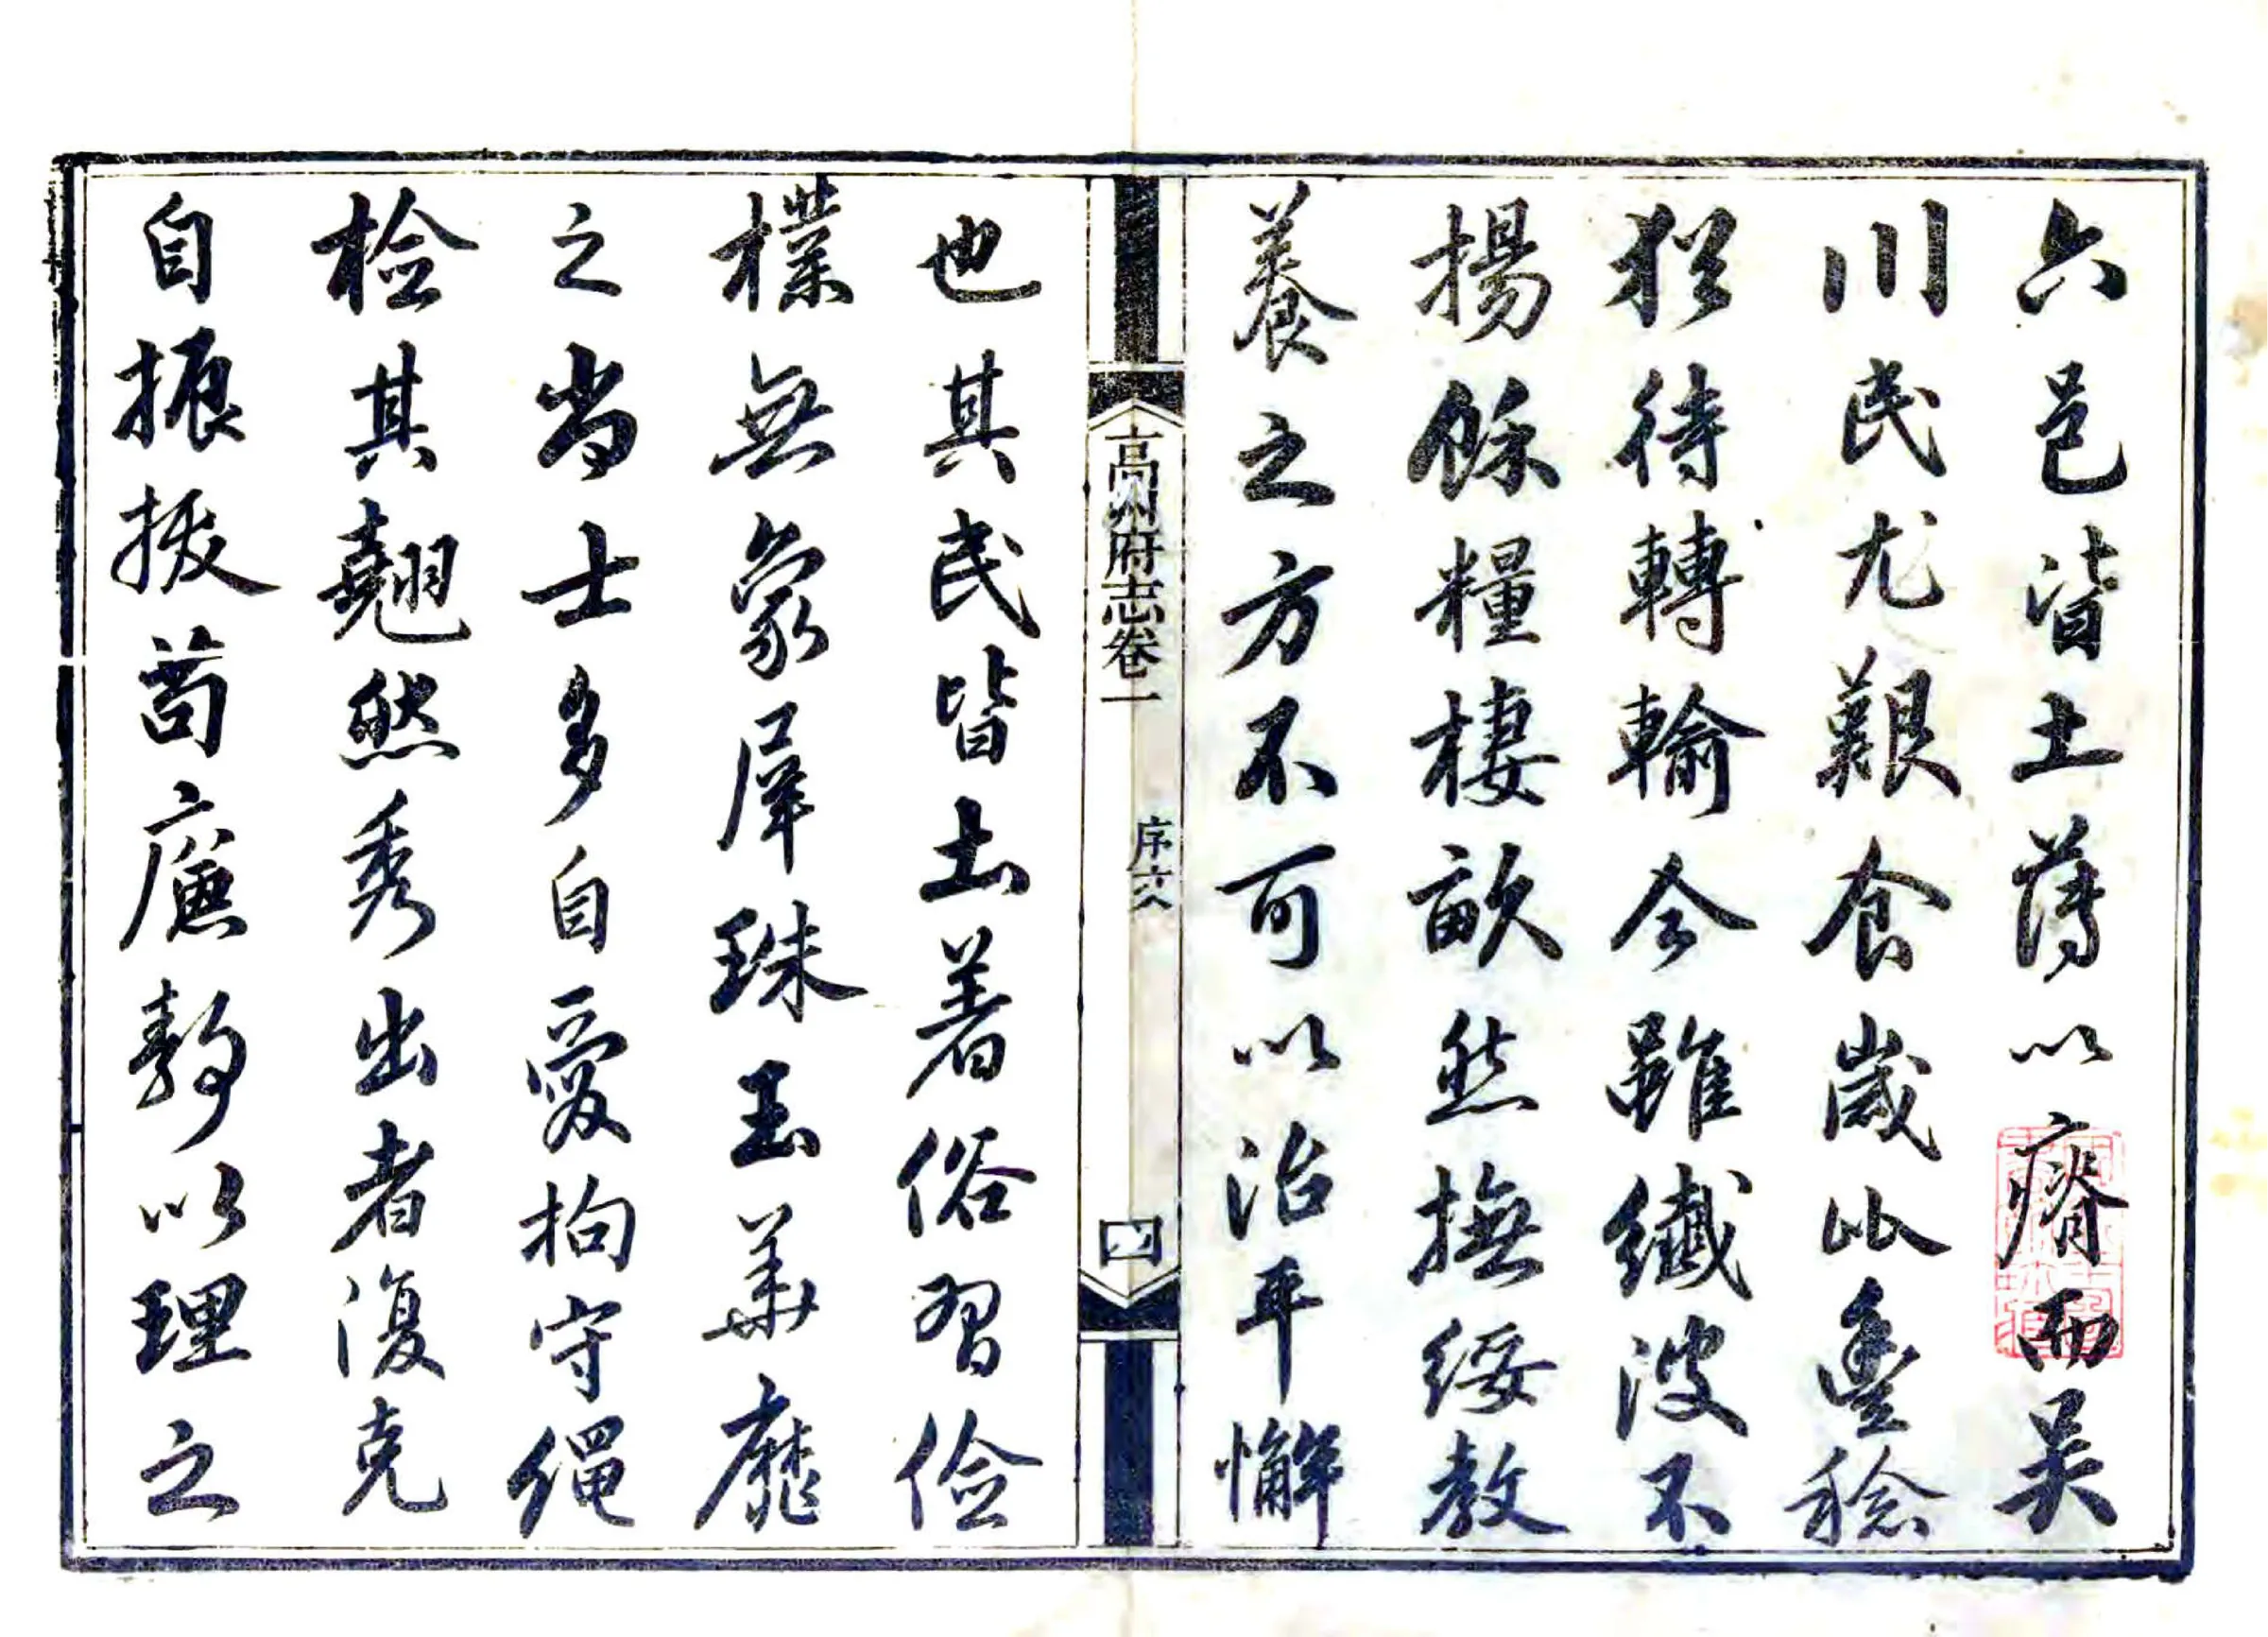 六邑皆土薄以瘠而吴
川民尤艱食歲比豊稔
猶待轉輸今雖纎波不
揚餘糧棲畝然撫綏教
養之方不可以治平懈
高州府志卷一
序六
四
也其民皆土著俗習儉
樸無象犀珠玉華靡
之尚士多自愛拘守繩
檢其翹然秀出者復克
自振拔苟廉静以理之